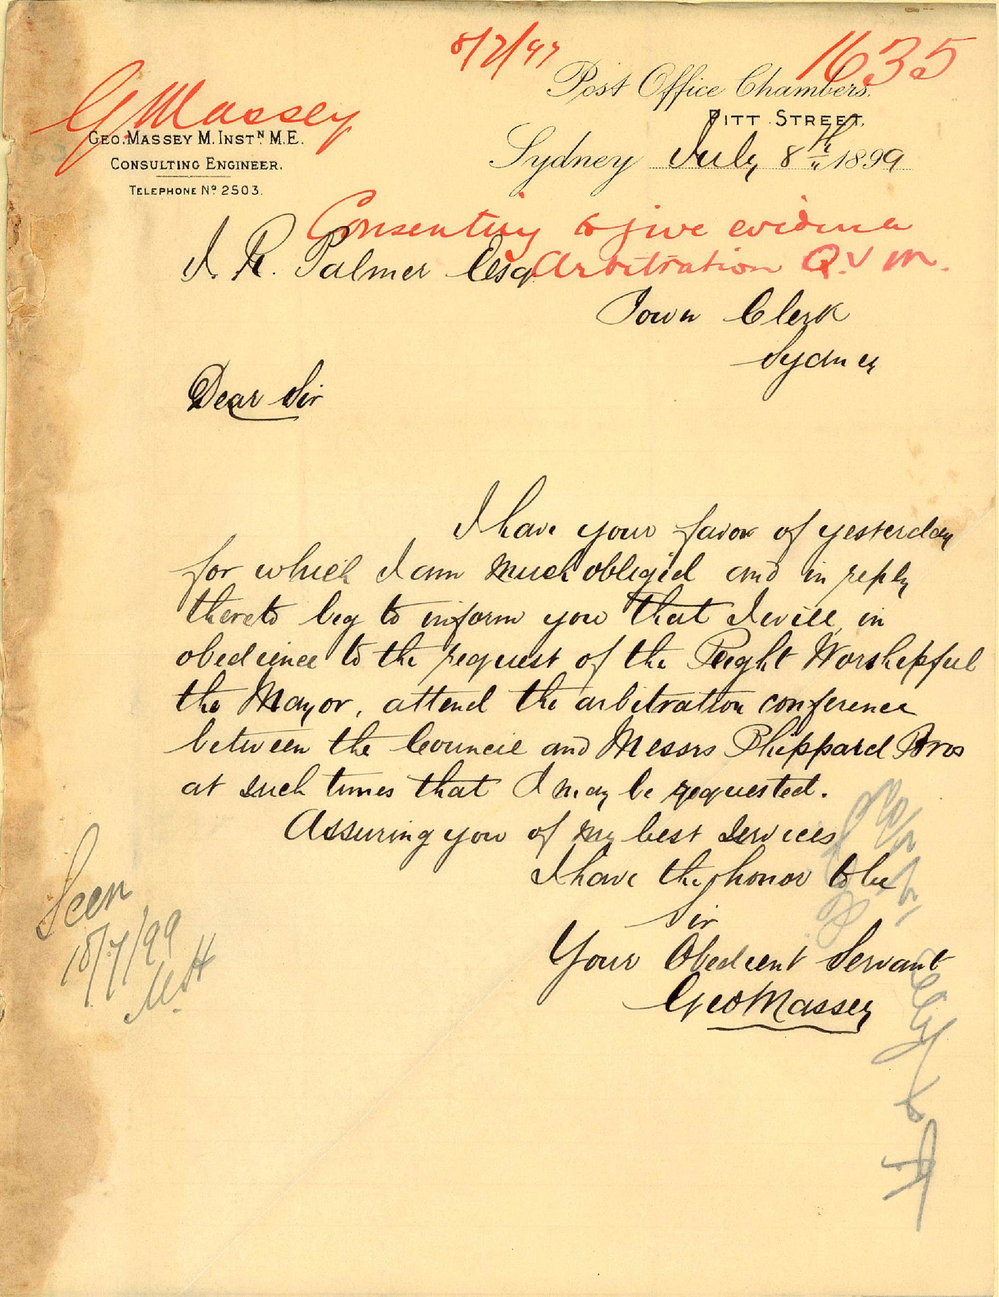 8/7/99
1635
G Massey
Post Office Chambers,
Pitt Street,
Geo. Massey M. Instn. M.E.
Consulting Engineer.
Telephone No 2503.
Sydney July 8th 1899
Consenting to give evidence
Arbitration Q.V.M.
J. R. Palmer Esq
Town Clerk
Sydney
Dear Sir
I have your favor of yesterday
for which I am much obliged and in reply
thereto beg to inform you that I will, in
obedience to the request of the Right Worshipful
the Mayor, attend the arbitration conference
between the Council and Messrs Phippard Bros
at such times that I may be requested.
Assuring you of my best services
I have the honor to be
Sir
Your Obedient Servant
Geo Massey
Seen
10/7/99